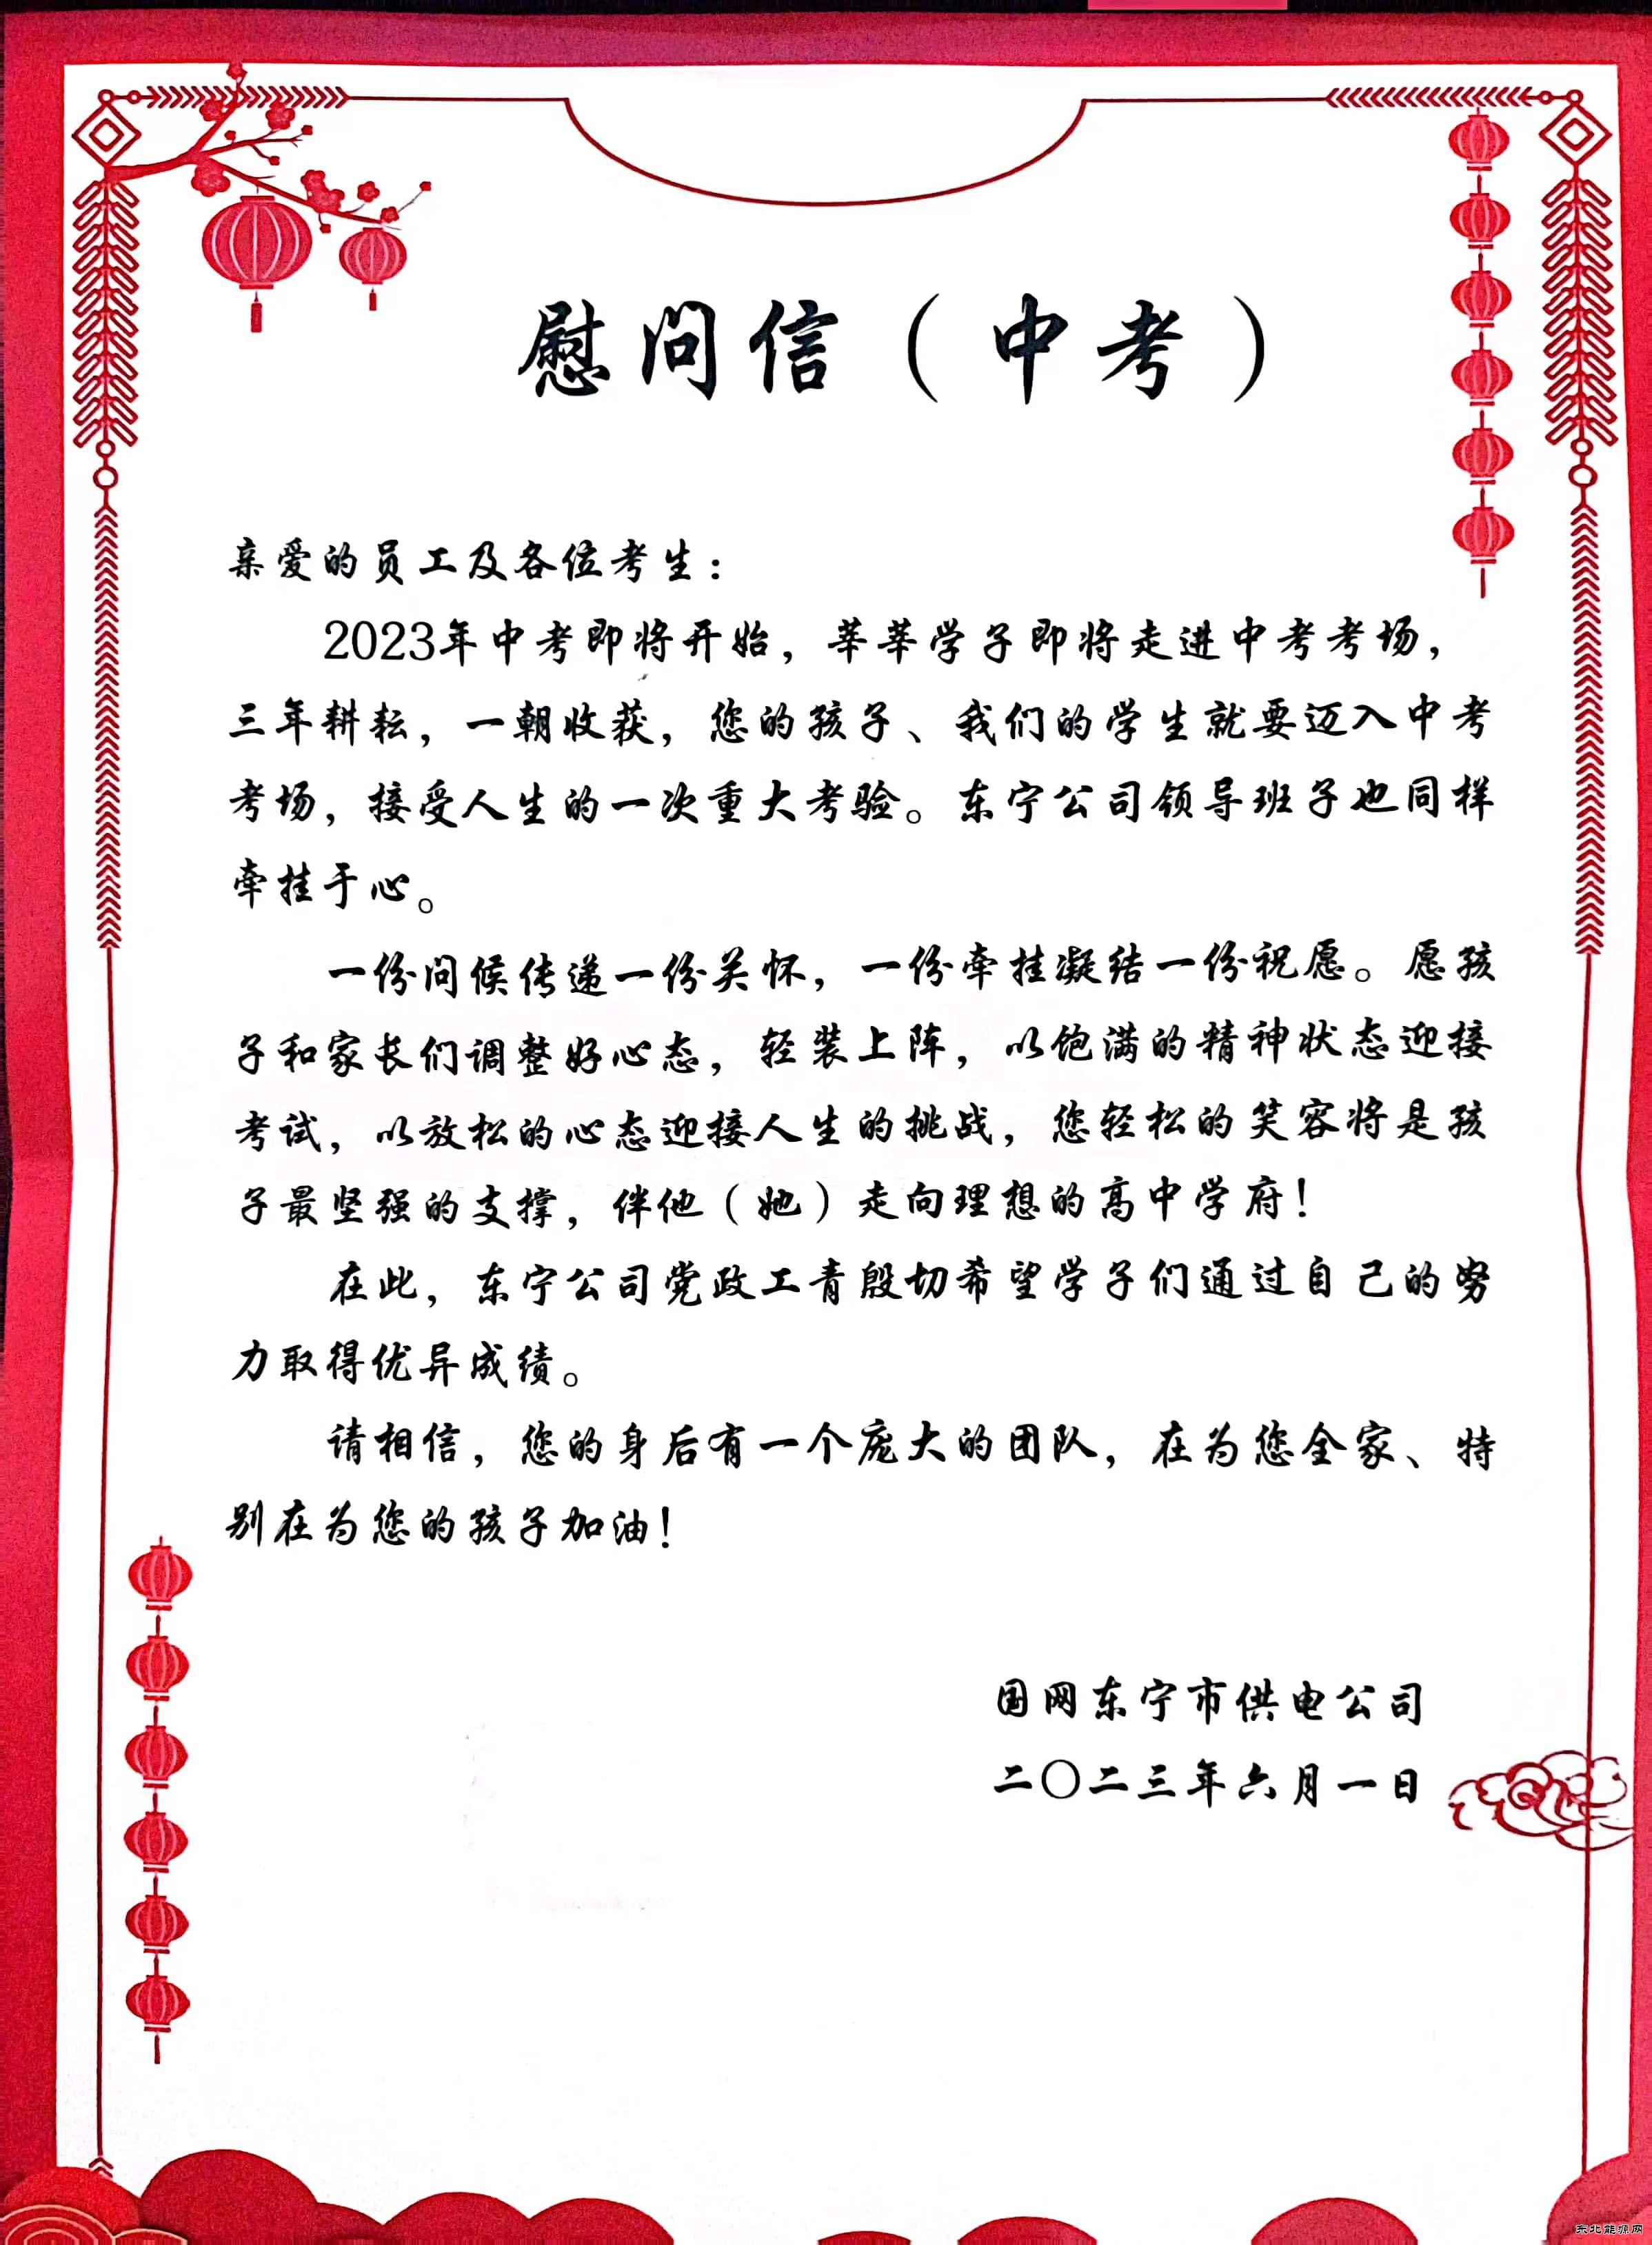 慰问信（中考）
亲爱的员工及各位考生：
2023年中考即将开始，莘莘学子即将走进中考考场，
三年耕耘，一朝收获，您的孩子、我们的学生就要迈入中考
考场，接受人生的一次重大考验。东宁公司领导班子也同样
牵挂于心。
一份问候传递一份关怀，一份牵挂凝结一份祝愿。愿孩
子和家长们调整好心态，轻装上阵，以饱满的精神状态迎接
考试，以放松的心态迎接人生的挑战，您轻松的笑容将是孩
子最坚强的支撑，伴他（她）走向理想的高中学府！
在此，东宁公司党政工青殷切希望学子们通过自己的努
力取得优异成绩。
请相信，您的身后有一个庞大的团队，在为您全家、特
别在为您的孩子加油！
国网东宁市供电公司
二〇二三年六月一日
东北能源网